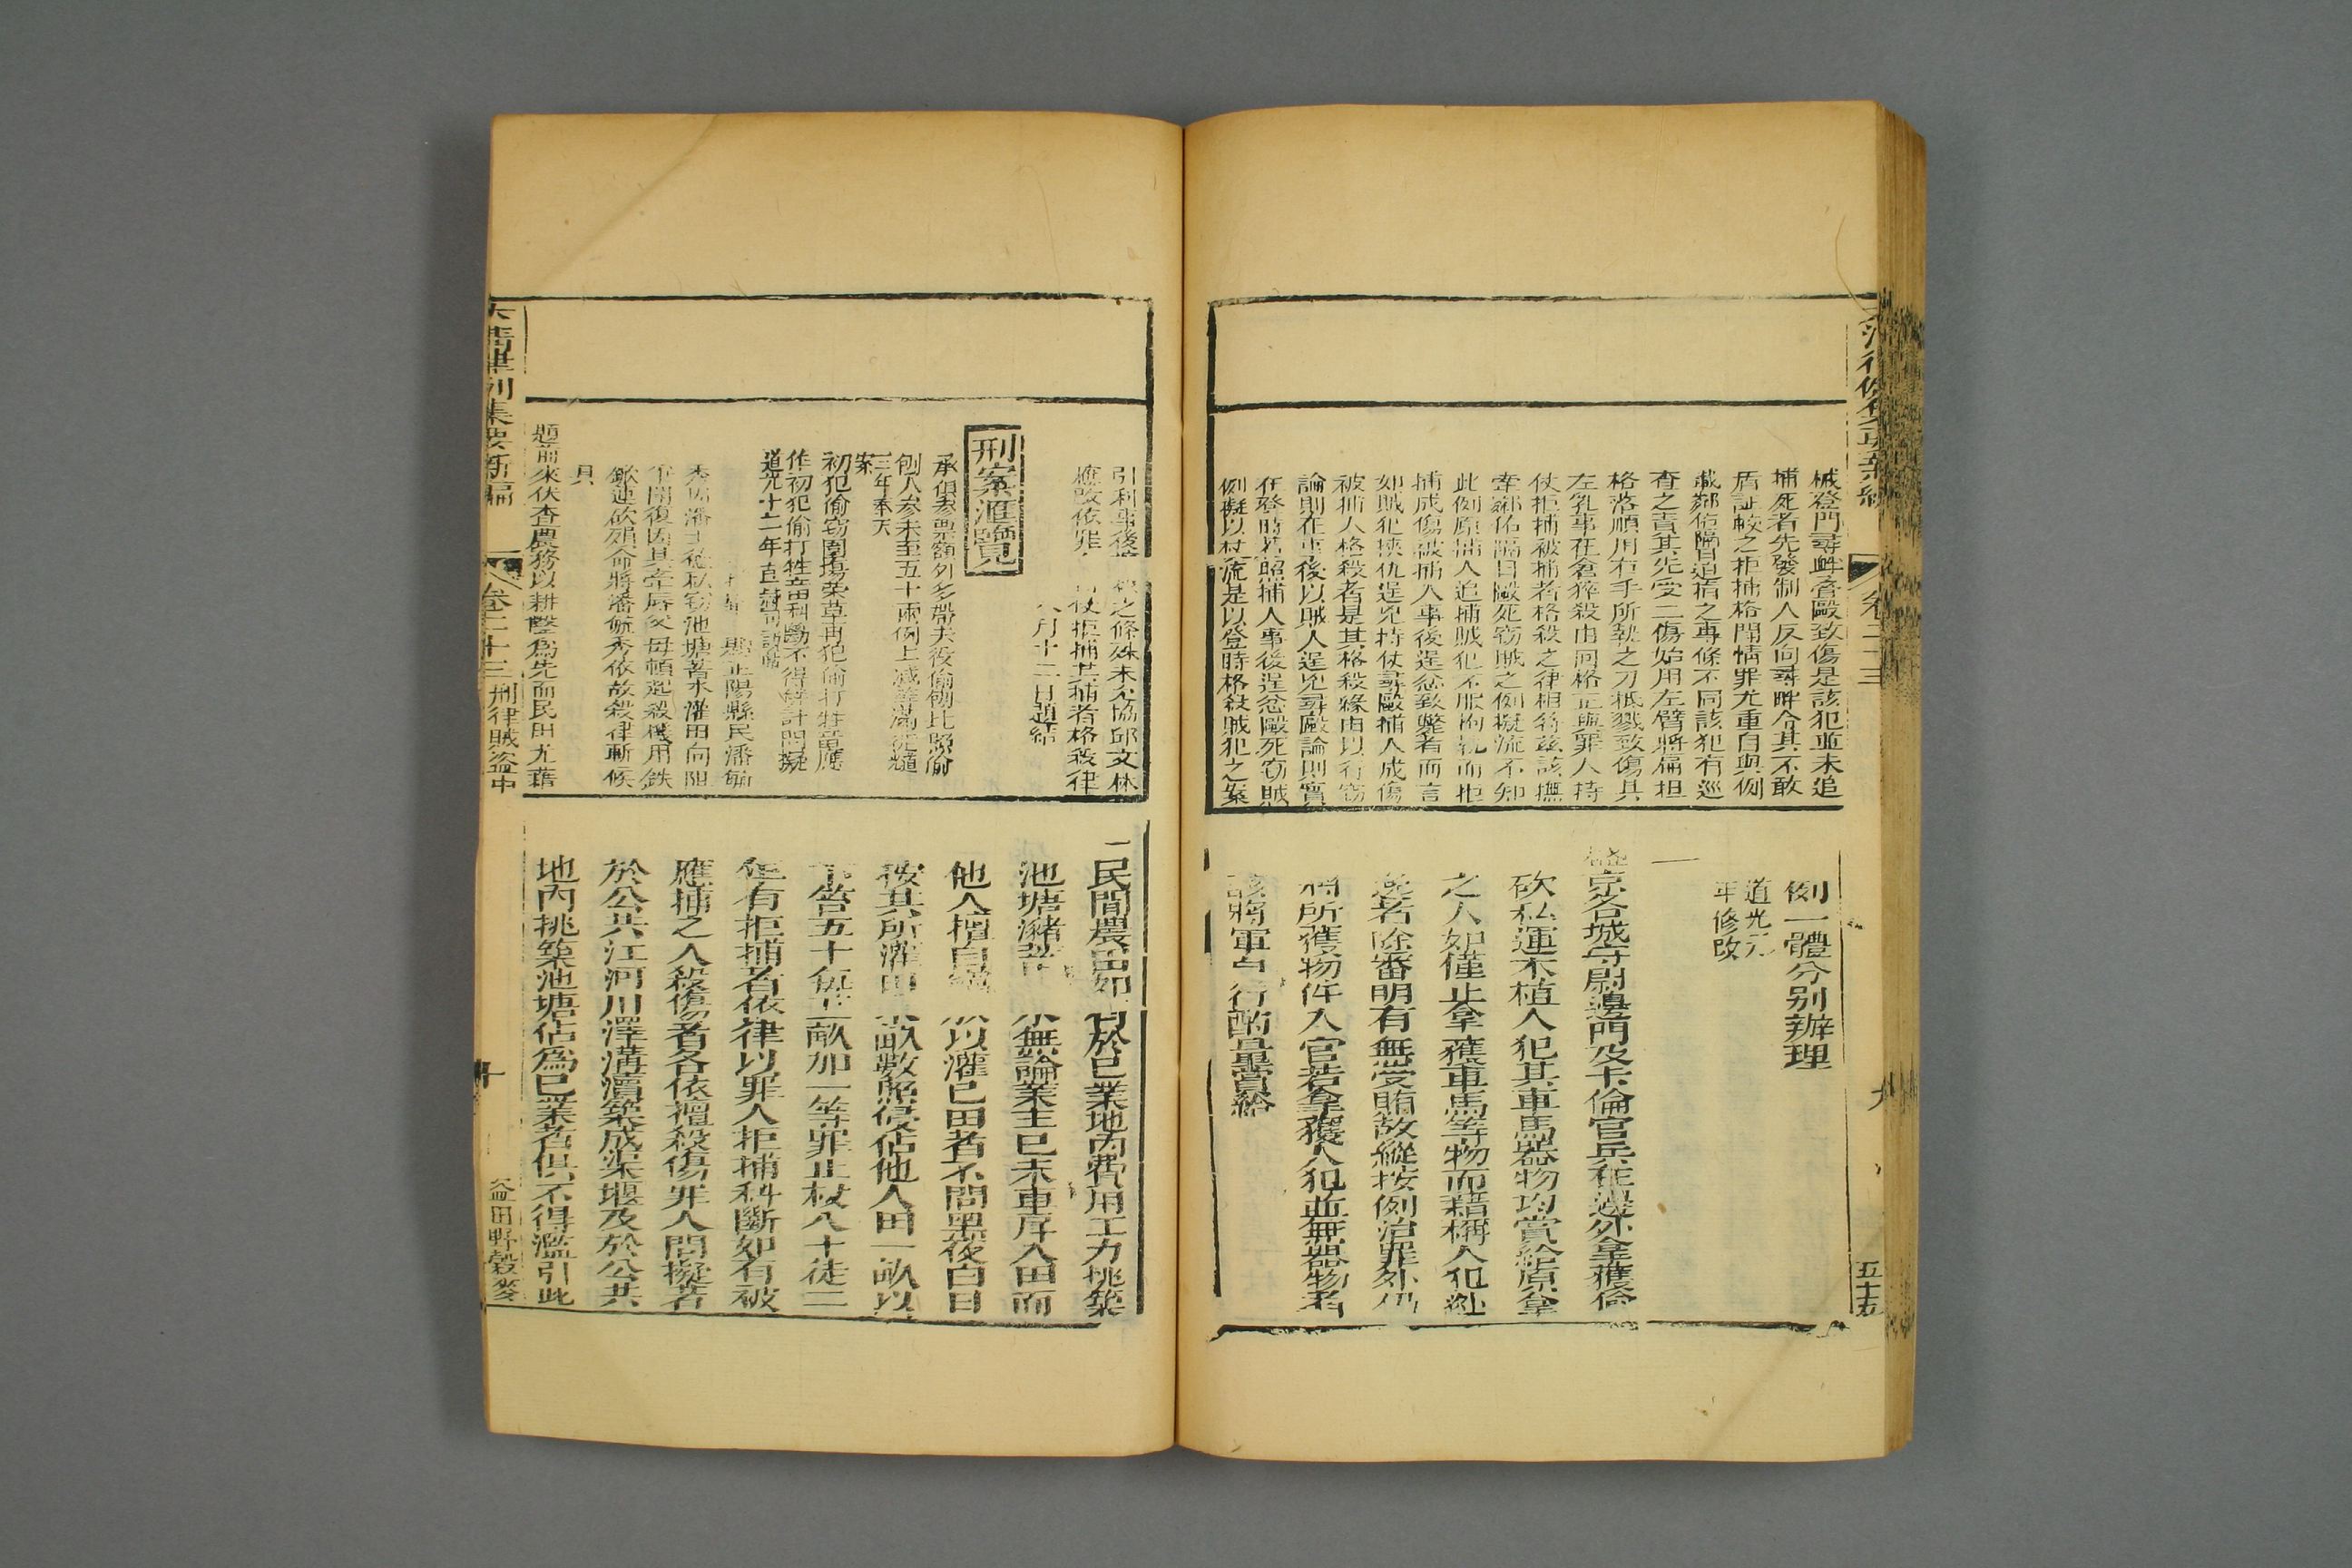 械登門尋衅奪毆致傷是該犯並未追
捕死者先發制人反向尋衅令其不敢
盾証較之拒捕格鬪情罪尤重自與例
載鄰佑隔日追捕之專條不同該犯有巡
查之責其先受二傷始用左臂將扁担
格落順用右手所執之刀抵戳致傷其
左乳事在倉猝殺由同格正與罪人持
仗拒捕被捕者格殺之律相符茲該撫
牽鄰佑隔日毆死窃賊之例擬流不知
此例原捕人追捕賊犯不服拘執而拒
捕成傷被捕人事後逞忿致斃者而言
如賊犯挾仇逞兇持仗尋毆捕人成傷
被捕人格殺者是其格殺緣由以行窃
論則在事後以賊人逞兇尋毆論則實
在登時若照捕人事後逞忿毆死窃賊
例擬以杖流是以登時格殺賊犯之案
例一體分别辦理
道光元
年修改
一
京各城守尉邊門及卡倫官兵在邊外拿獲偷
砍私運木植人犯其車馬器物均賞給原拿
之人如僅止拿獲車馬等物而藉稱人犯逃
逸者除審明有無受賄故縱按例治罪外仍
將所獲物件入官若拿獲人犯並無器物者
該將軍自行酌量賞給
卷二十三
九
五十五
引刑事後
應改依罪
之條殊未允協邱文林
仗拒捕其捕者格殺律
八月十二日題結
刑案滙覽
承領參票額外多帶夫役偷刨比照偷
刨人參未至五十兩例上減等滿徒道
三年奉天
案
初犯偷窃圍塲柴草再犯偷打牲畜應
作初犯偷打牲畜科斷不得倂計問擬
道光十二年直隸司說帖
正陽縣民潘毓
秀因潘士德私窃池塘蓄水灌田向阻
爭閙復因其牽辱父母頓起殺機用鉄
鍬連砍殞命將潘毓秀依故殺律斬候
具
題前來伏查農務以耕墾爲先而民田尤藉
一民間農田如有於己業地內費用工力挑築
池塘瀦蓄之水無論業主已未車戽入田而
他人擅自竊放以灌己田者不問黑夜白日
按其所灌田禾畝數照侵佔他人田一畝以
下笞五十每五畝加一等罪止杖八十徒二
但有拒捕者依律以罪人拒捕科斷如有被
應捕之人殺傷者各依擅殺傷罪人問擬若
於公共江河川澤溝瀆築成渠堰及於公共
地內挑築池塘佔爲己業者俱不得濫引此
大清律例集要新編
卷二十三
刑律賊盜中
十
盜田野穀麥